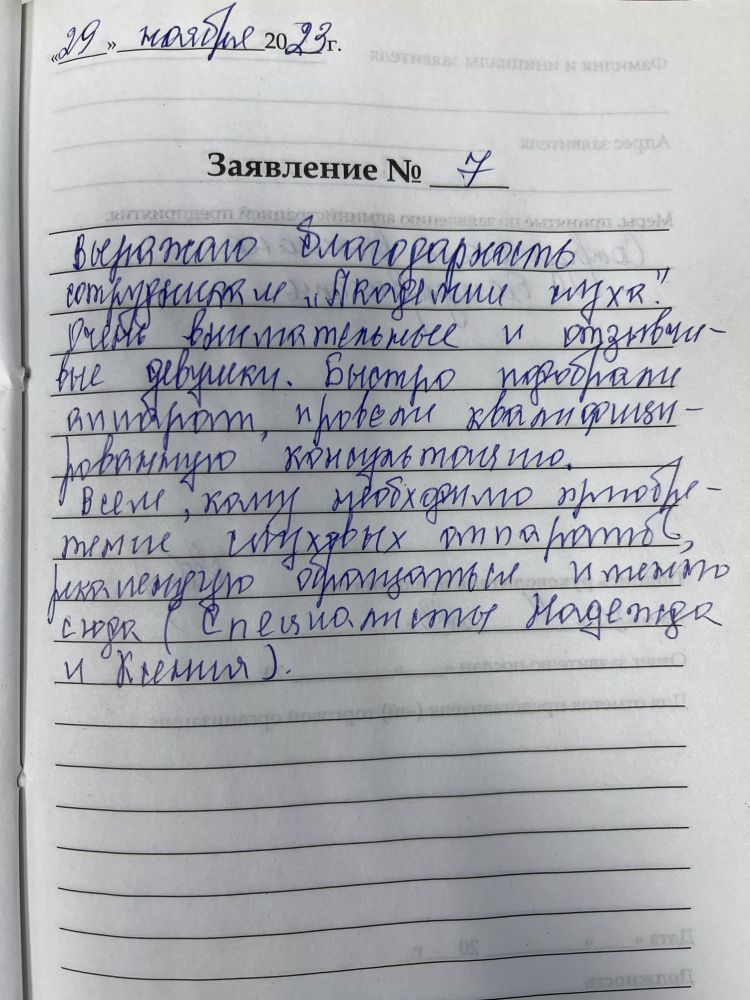 «29» ноября 2023г.
Заявление № 7
Выражаю благодарность
сотрудникам „Академии слуха".
Очень внимательные и отзывчи-
вые девушки. Быстро подобрали
аппарат, провели квалифици-
рованную консультацию.
Всем, кому необходимо приобре-
тение слуховых аппаратов,
рекомендую обращаться именно
сюда (Специалисты Надежда
и Ксения).